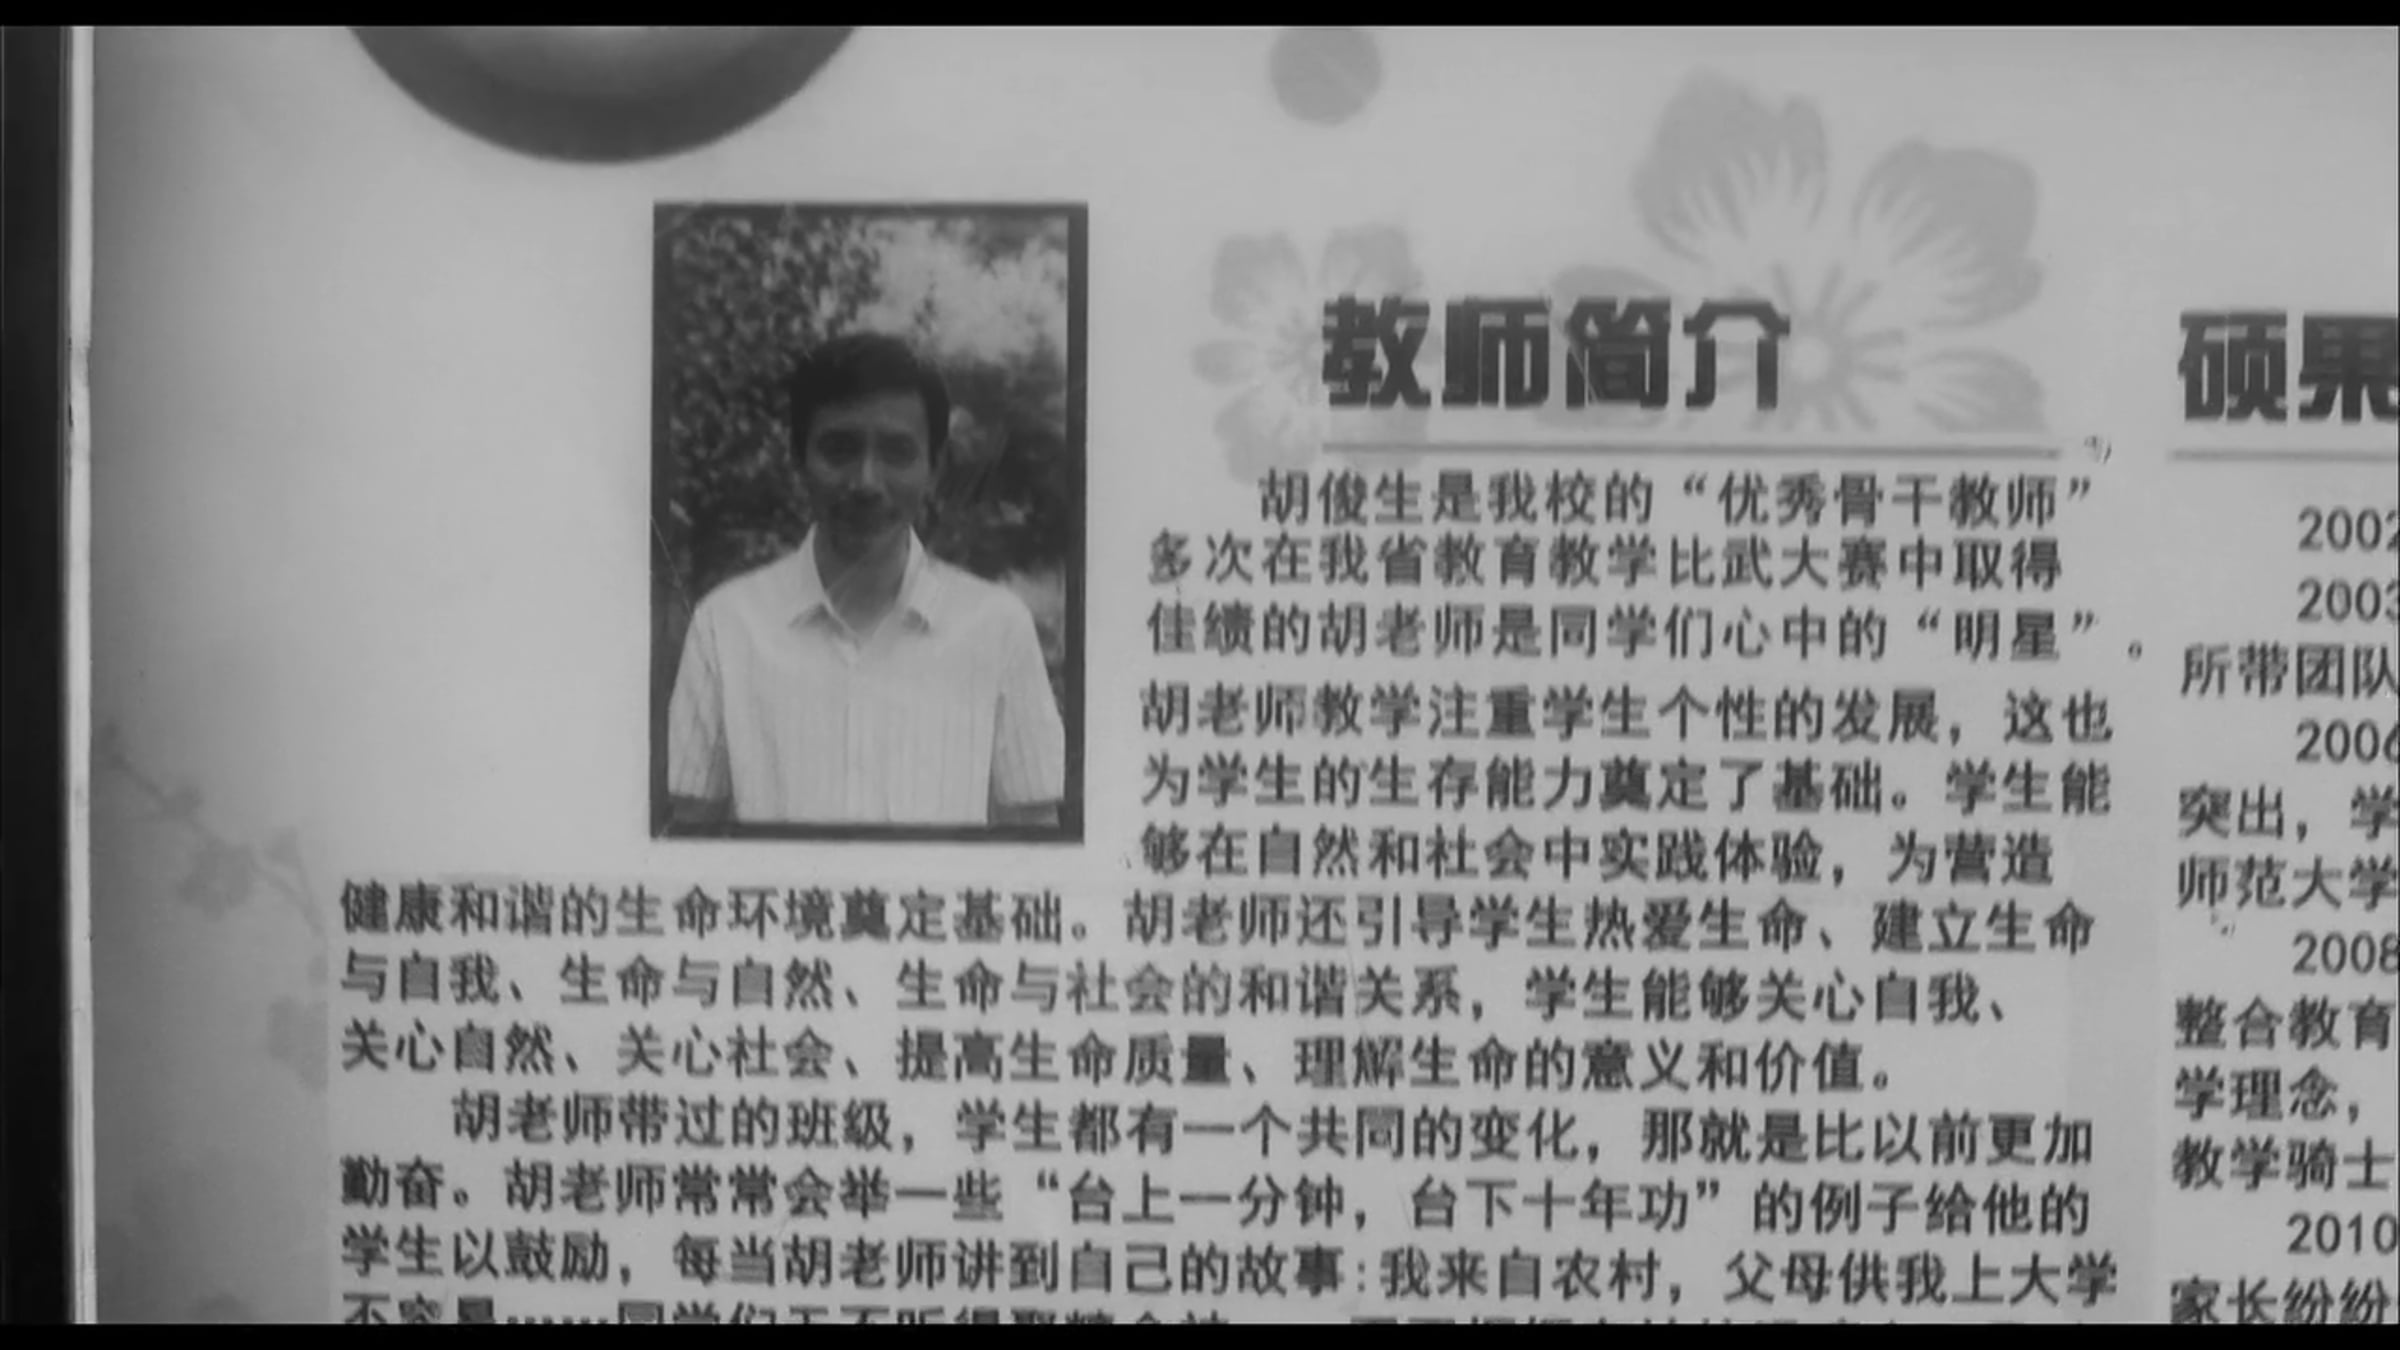 教师简介
胡俊生是我校的“优秀骨干教师”
多次在我省教育教学比武大赛中取得
佳绩的胡老师是同学们心中的“明星”。
胡老师教学注重学生个性的发展，这也
为学生的生存能力奠定了基础。学生能
够在自然和社会中实践体验，为营造
健康和谐的生命环境奠定基础。胡老师还引导学生热爱生命、建立生命
与自我、生命与自然、生命与社会的和谐关系，学生能够关心自我、
关心自然、关心社会、提高生命质量、理解生命的意义和价值。
胡老师带过的班级，学生都有一个共同的变化，那就是比以前更加
勤奋。胡老师常常会举一些“台上一分钟，台下十年功”的例子给他的
学生以鼓励，每当胡老师讲到自己的故事:我来自农村，父母供我上大学
硕果
2002
2003
所带团队
2006
突出，学
师范大学
2008
整合教育
学理念，
教学骑士
2010
家长纷纷